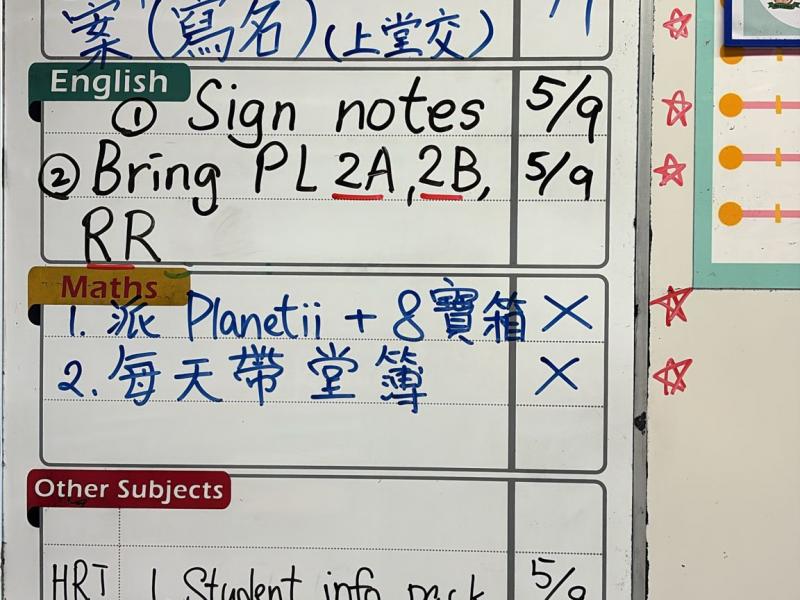 案(寫名)(上堂交)
English
① Sign notes 5/9
② Bring PL 2A, 2B, 5/9
RR
Maths
1. 派 Planetii + 8寶箱 ×
2. 每天帶堂簿 ×
Other Subjects
HRT 1 Student info pack 5/9